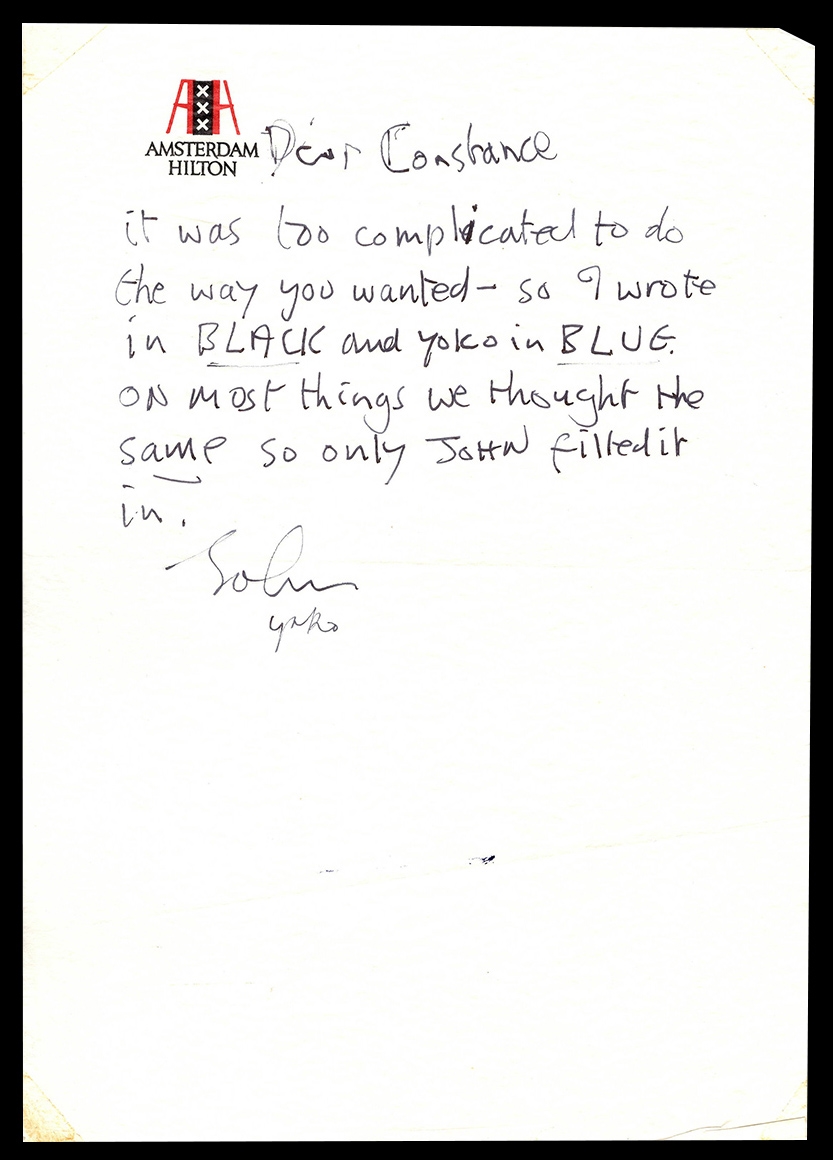 AMSTERDAM
HILTON
Dear Constance
it was too complicated to do
the way you wanted - so I wrote
in BLACK and yoko in BLUE.
ON most things we thought the
same so only JOHN filled it
in.
John
yoko